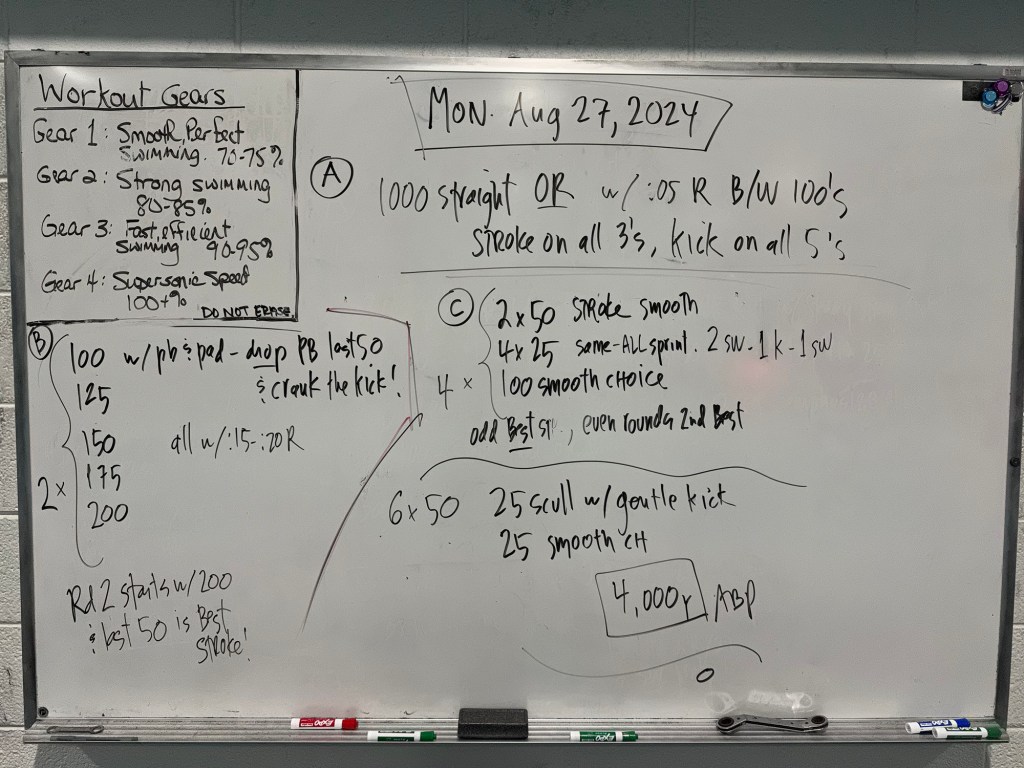 Workout Gears
Gear 1: Smooth, Perfect
Swimming. 70-75%
Gear 2: Strong swimming
80-85%
Gear 3: Fast, efficient
Swimming 90-95%
Gear 4: Supersonic Speed
100+%
DO NOT ERASE
MON. Aug 27, 2024
A
1000 straight OR w/ :05 R B/W 100's
stroke on all 3's, kick on all 5's
B
100 w/ pb & pad - drop PB last 50
& crank the kick!
125
150 all w/ :15-:20 R
175
2 x
200
Rd 2 starts w/ 200
& last 50 is Best
stroke!
C
2 x 50 stroke smooth
4 x 25 same - ALL sprint. 2 sw - 1 k - 1 sw
4 x
100 smooth choice
odd Best, even rounds 2nd Best
6 x 50 25 scull w/ gentle kick
25 smooth CH
4,000y ABP
EXPO
EXPO
EXPO